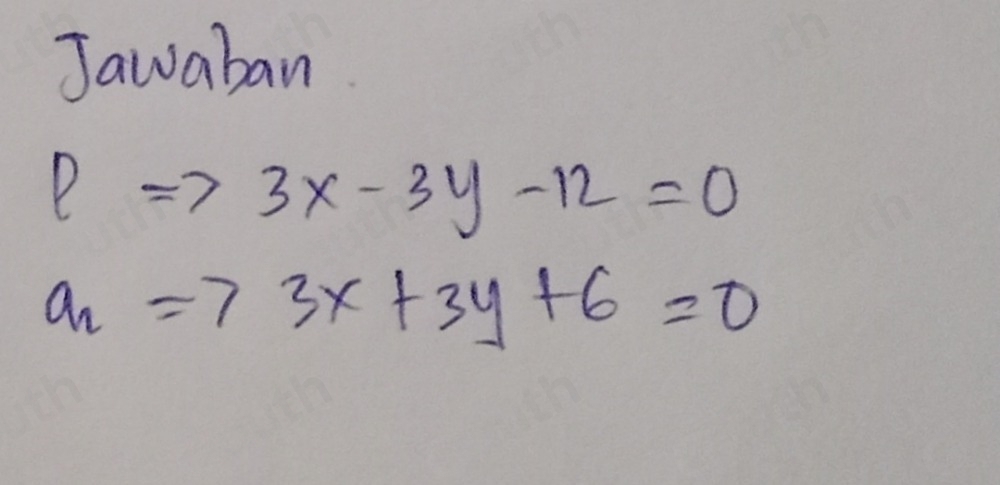 Jawaban
l => 3x - 3y - 12 = 0
=> 3x + 3y + 6 = 0